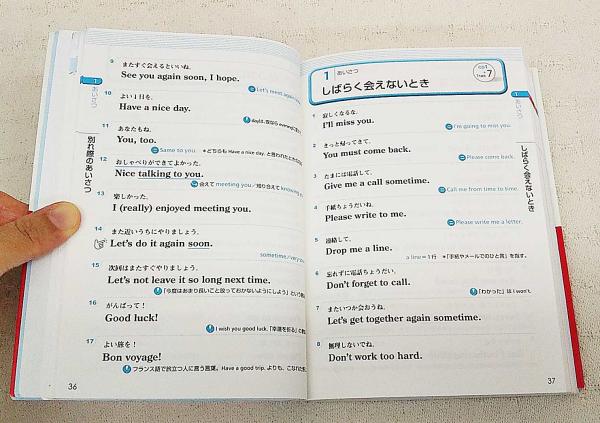 1
あいさつ
別れ際のあいさつ
9 またすぐ会えるといいね。
See you again soon, I hope.
= Let's meet again
10 よい1日を。
Have a nice day.
11 あなたもね。
You, too.
= Same to you. *どちらも Have a nice day. と言われたときの
12 おしゃべりができてよかった。
Nice talking to you.
会えて meeting you/知り合えて knowing
13 楽しかった。
I (really) enjoyed meeting you.
14 また近いうちにやりましょう。
Let's do it again soon.
sometime
15 次回はまたすぐやりましょう。
Let's not leave it so long next time.
「今度はあまり長いこと放っておかないようにしよう」という
16 がんばって!
Good luck!
I wish you good luck.「幸運を祈る」
17 よい旅を!
Bon voyage!
フランス語で旅立つ人に言う言葉。Have a good trip. よりも、
36
1 あいさつ
しばらく会えないとき
CD1 Track 7
1 寂しくなるな。
I'll miss you.
= I'm going to miss you.
2 きっと帰ってきて。
You must come back.
= Please come back.
3 たまには電話して。
Give me a call sometime.
= Call me from time to time.
4 手紙ちょうだいね。
Please write to me.
= Please write me a letter.
5 連絡して。
Drop me a line.
a line=1行 *「手紙やメールでのひと言」を指す。
6 忘れずに電話ちょうだい。
Don't forget to call.
「わかった」は I won't.
7 またいつか会おうね。
Let's get together again sometime.
8 無理しないでね。
Don't work too hard.
1
あいさつ
しばらく会えないとき
37